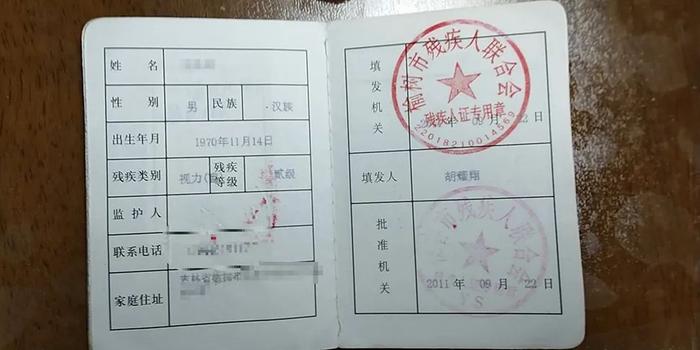 姓 名
性 别 男 民族 汉族
出生年月 1970年11月14日
残疾类别 视力 残疾等级 贰级
监护人
联系电话
家庭住址 吉林省榆树
填发机关
榆树市残疾人联合会
残疾人证专用章
22018210014569
年 09 月 22 日
填发人 胡耀翔
批准机关
市残疾人联合会
2011 年 09 月 22 日